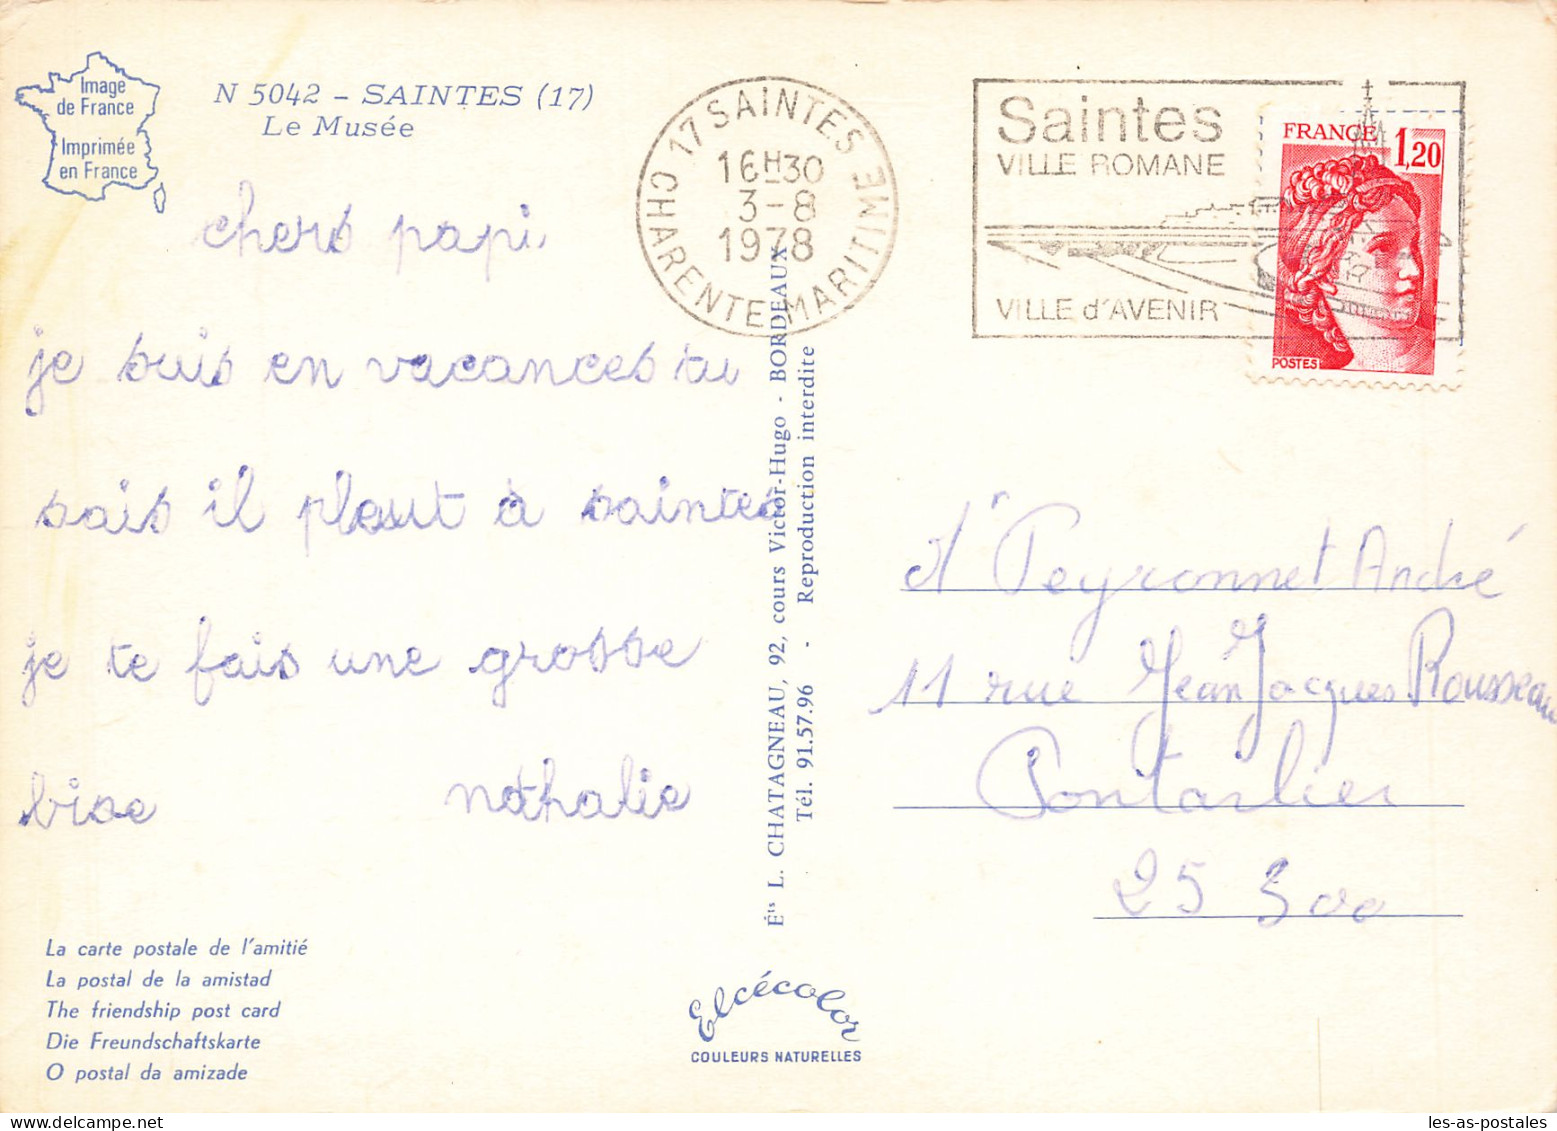 Image
de France
Imprimée
en France
N 5042 - SAINTES (17)
Le Musée
chers papi
je suis en vacances tu
sais il pleut à saintes
je te fais une grosse
bise nathalie
La carte postale de l'amitié
La postal de la amistad
The friendship post card
Die Freundschaftskarte
O postal da amizade
Éts L. CHATAGNEAU, 92, cours Victor-Hugo - BORDEAUX
Tél. 91.57.96 - Reproduction interdite
Elcécolor
COULEURS NATURELLES
17 SAINTES
16H30
3-8
1978
CHARENTE MARITIME
Saintes
VILLE ROMANE
VILLE d'AVENIR
FRANCE 1,20
POSTES
Mr Peyronnet André
11 rue Jean Jacques Rousseau
Pontarlier
25 300
les-as-postales